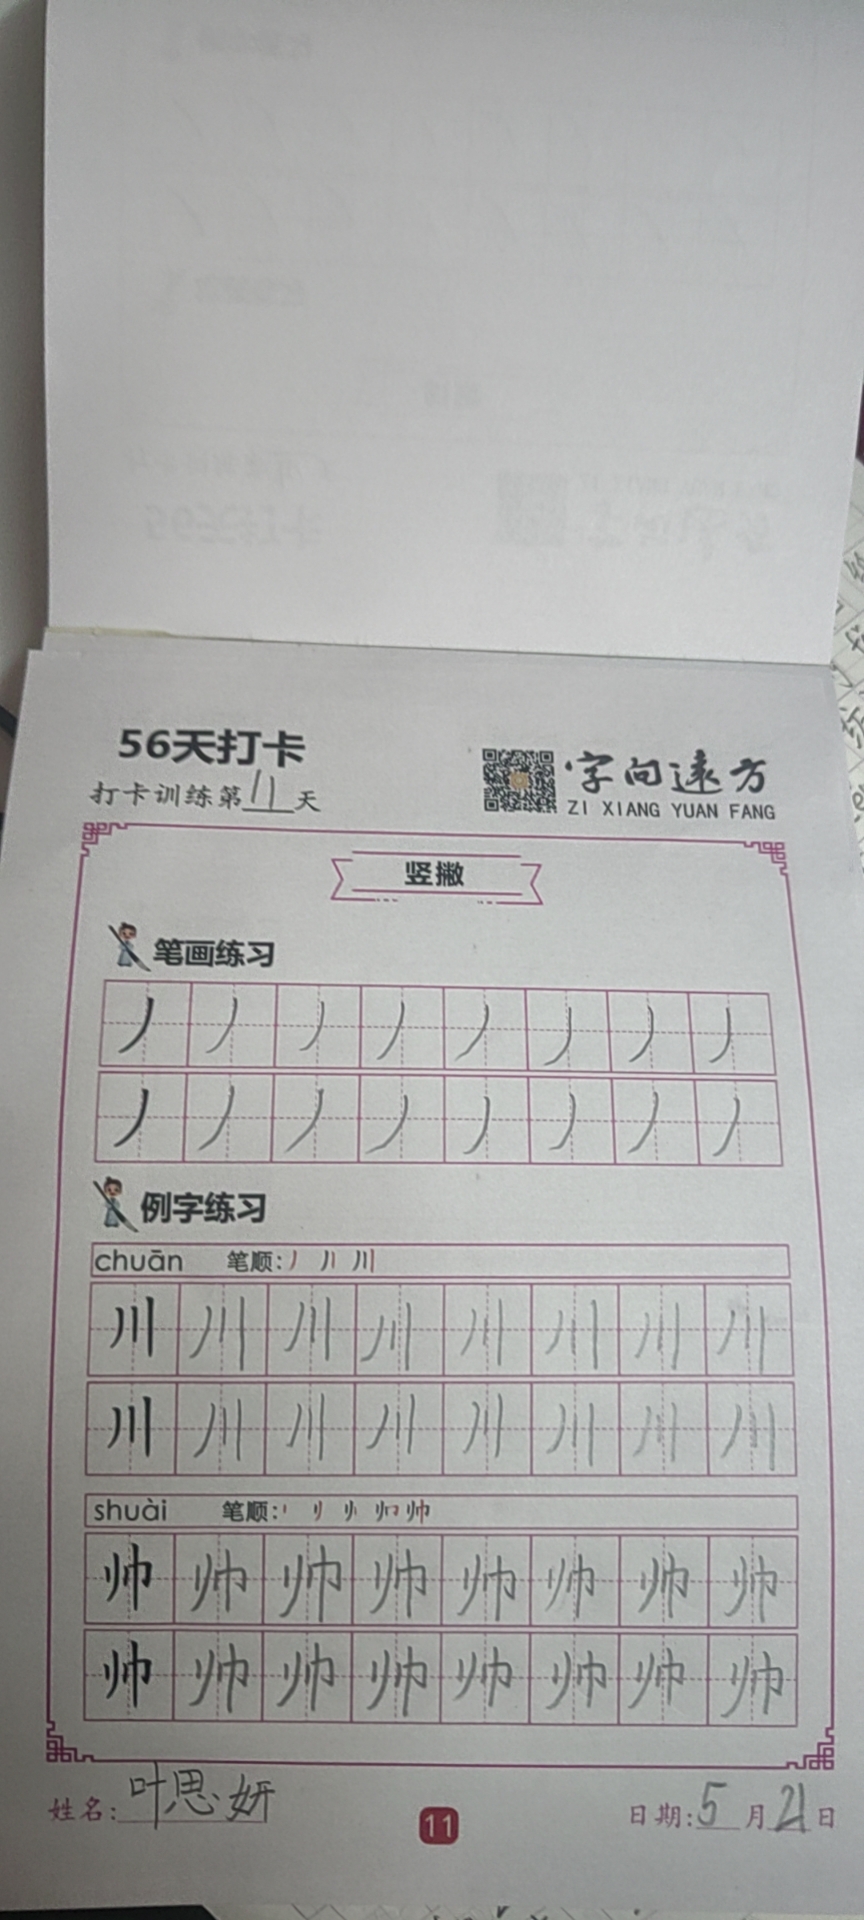 56天打卡
打卡训练第11天
字向远方
ZI XIANG YUAN FANG
竖撇
笔画练习
丿 丿 丿 丿 丿 丿 丿 丿
丿 丿 丿 丿 丿 丿 丿 丿
例字练习
chuān 笔顺:丿 丿丨 川
川 川 川 川 川 川 川 川
川 川 川 川 川 川 川 川
shuài 笔顺: 帅
帅 帅 帅 帅 帅 帅 帅 帅
帅 帅 帅 帅 帅 帅 帅 帅
姓名:叶思妍
11
日期:5月21日